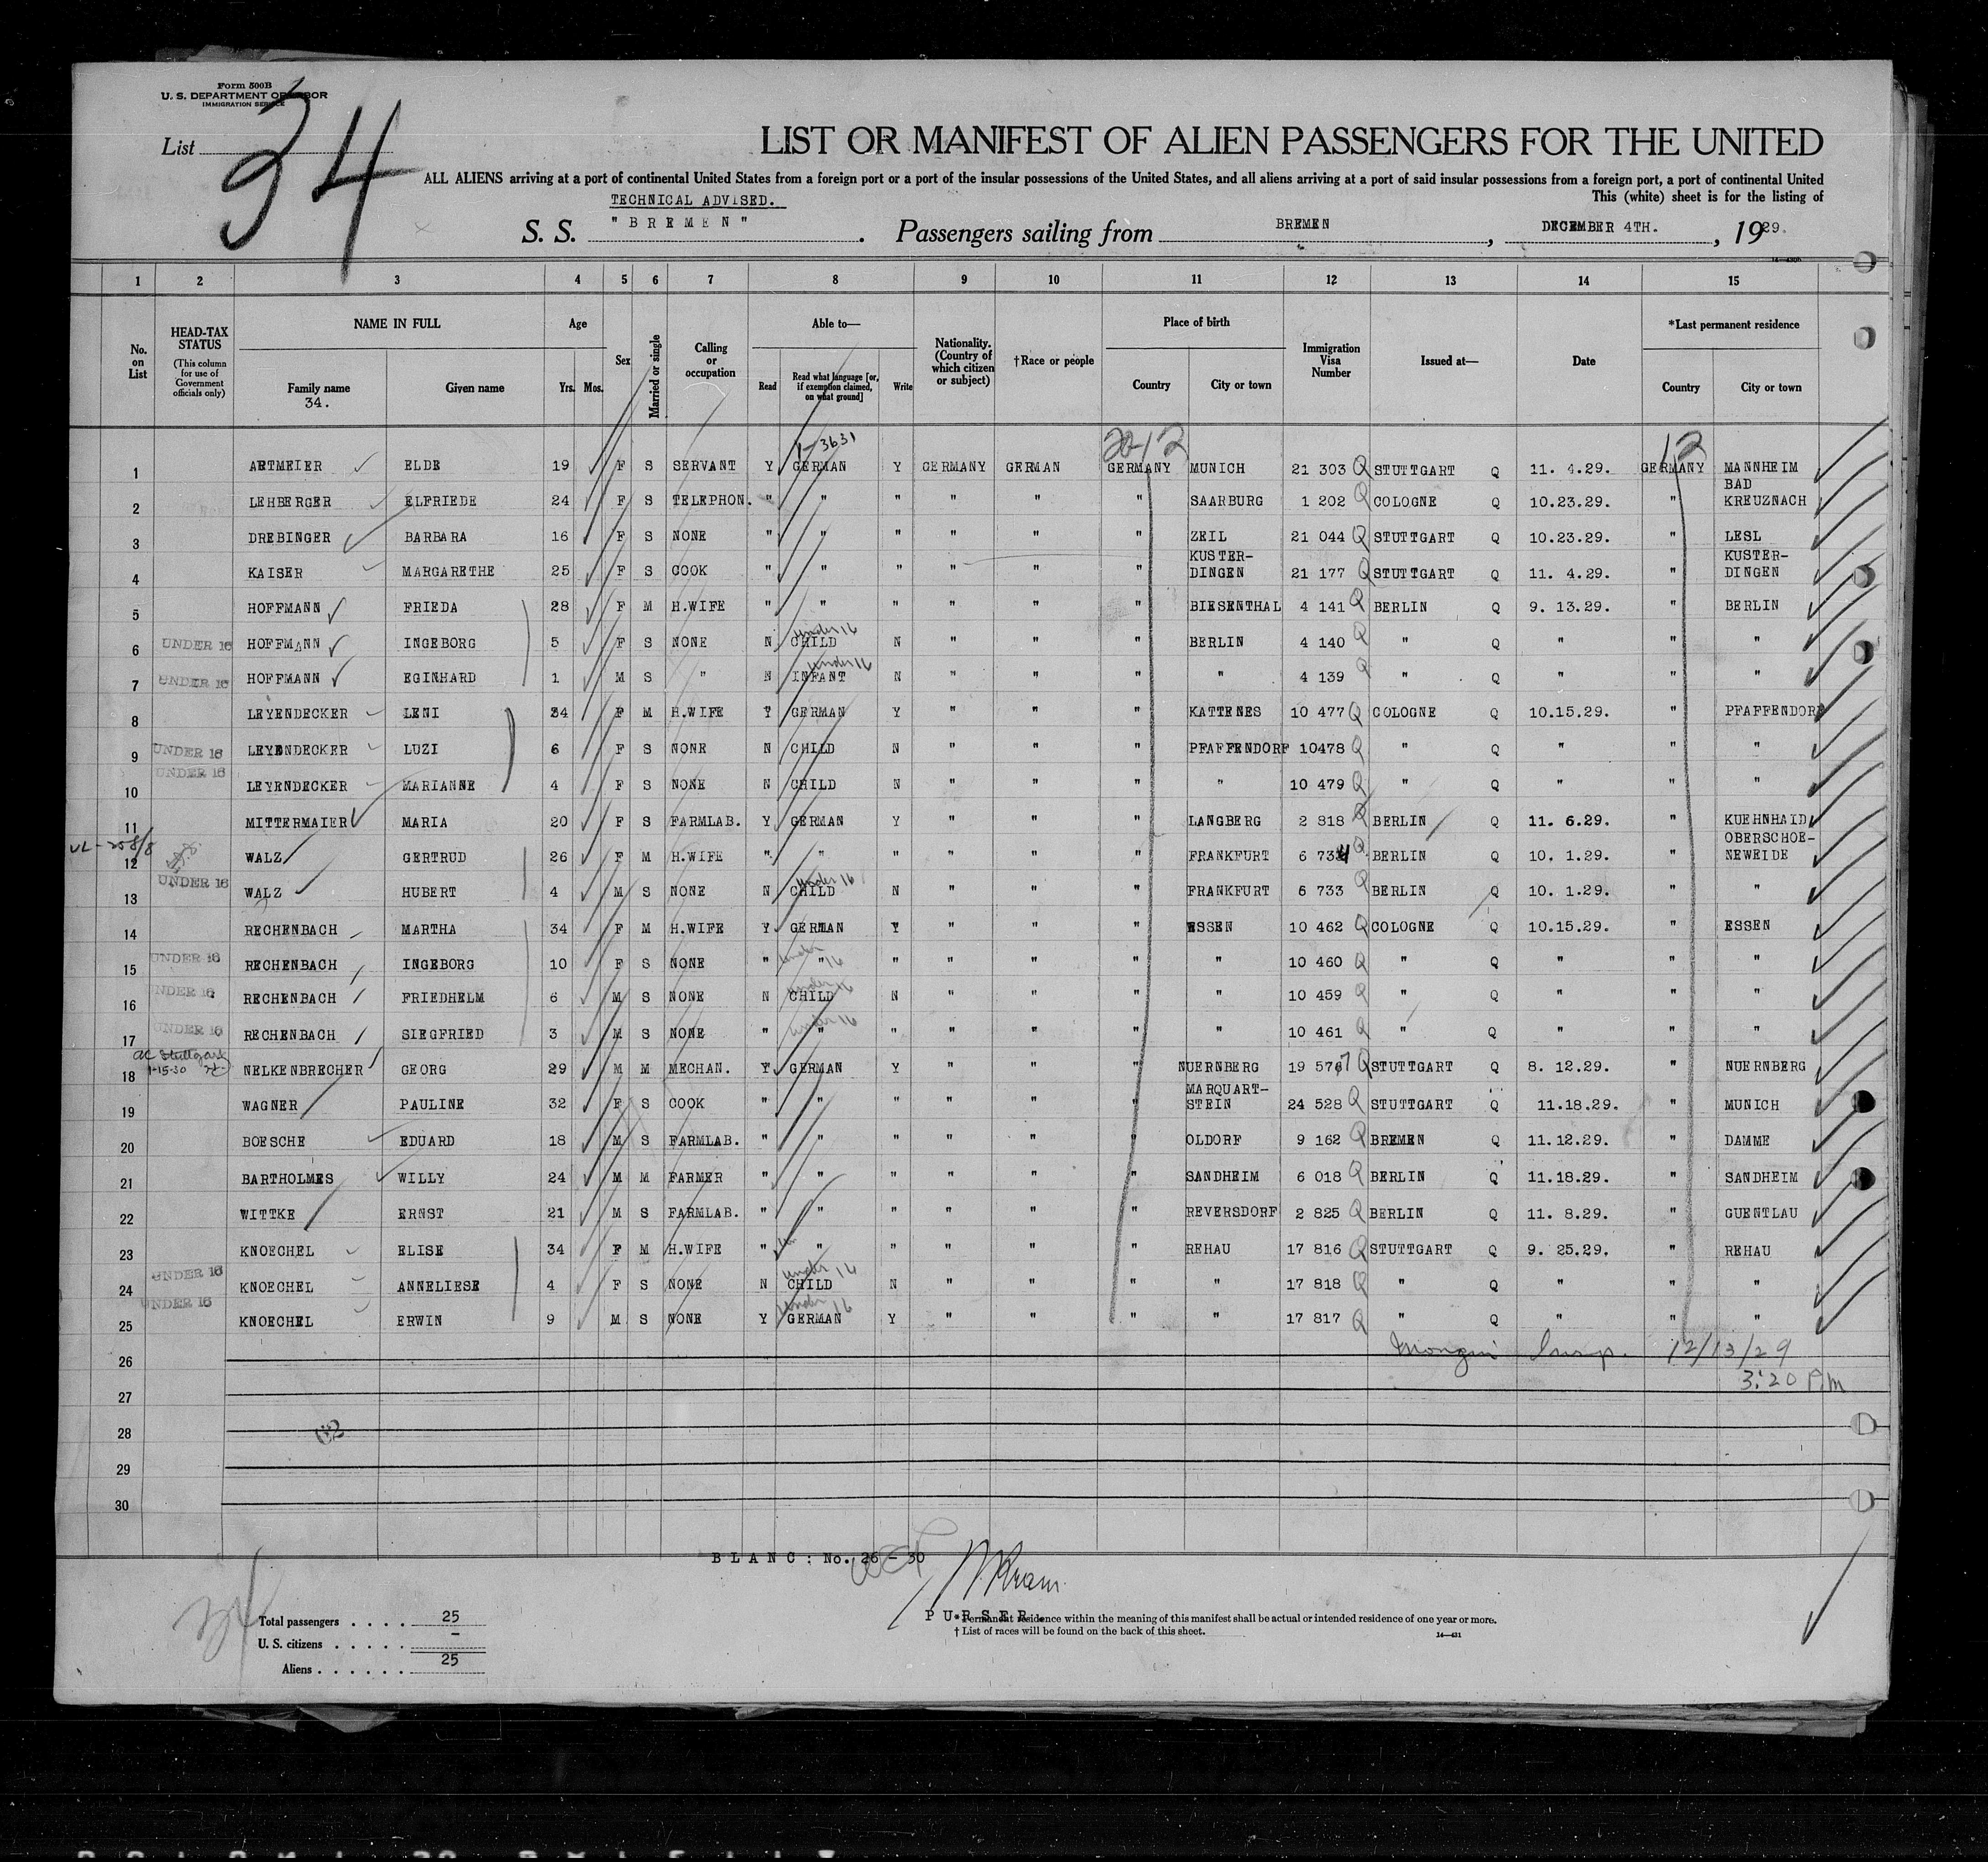 Form 500B
U. S. DEPARTMENT OF LABOR
IMMIGRATION SERVICE
List 34
LIST OR MANIFEST OF ALIEN PASSENGERS FOR THE UNITED
ALL ALIENS arriving at a port of continental United States from a foreign port or a port of the insular possessions of the United States, and all aliens arriving at a port of said insular possessions from a foreign port, a port of continental United
This (white) sheet is for the listing of
TECHNICAL ADVISED.
S. S. "BREMEN". Passengers sailing from BREMEN, DECEMBER 4TH., 1929.
14—430b
1 2 3 4 5 6 7 8 9 10 11 12 13 14 15
No. on List
HEAD-TAX STATUS (This column for use of Government officials only)
NAME IN FULL Family name Given name
34.
Age Yrs. Mos.
Sex
Married or single
Calling or occupation
Able to— Read Read what language [or, if exemption claimed, on what ground] Write
Nationality. (Country of which citizen or subject)
†Race or people
Place of birth Country City or town
Immigration Visa Number
Issued at—
Date
*Last permanent residence Country City or town
1-3631 20-12 12
1 ARTMEIER ELDE 19 F S SERVANT Y GERMAN Y GERMANY GERMAN GERMANY MUNICH 21 303 Q STUTTGART Q 11. 4.29. GERMANY MANNHEIM
2 LEHBERGER ELFRIEDE 24 F S TELEPHON. " " " " " " SAARBURG 1 202 Q COLOGNE Q 10.23.29. " BAD KREUZNACH
3 DREBINGER BARBARA 16 F S NONE " " " " " " ZEIL 21 044 Q STUTTGART Q 10.23.29. " LESL
4 KAISER MARGARETHE 25 F S COOK " " " " " " KUSTER-DINGEN 21 177 Q STUTTGART Q 11. 4.29. " KUSTER-DINGEN
5 HOFFMANN FRIEDA 28 F M H.WIFE " " " " " " BIESENTHAL 4 141 Q BERLIN Q 9. 13.29. " BERLIN
6 UNDER 16 HOFFMANN INGEBORG 5 F S NONE N CHILD under 16 N " " " BERLIN 4 140 Q " Q " " "
7 UNDER 16 HOFFMANN EGINHARD 1 M S " N INFANT under 16 N " " " " 4 139 Q " Q " " "
8 LEYENDECKER LENI 34 F M H.WIFE Y GERMAN Y " " " KATTENES 10 477 Q COLOGNE Q 10.15.29. " PFAFFENDORF
9 UNDER 16 LEYENDECKER LUZI 6 F S NONE N CHILD N " " " PFAFFENDORF 10478 Q " Q " " "
10 UNDER 16 LEYENDECKER MARIANNE 4 F S NONE N CHILD N " " " " 10 479 Q " Q " " "
11 MITTERMAIER MARIA 20 F S FARMLAB. Y GERMAN Y " " " LANGBERG 2 818 Q BERLIN Q 11. 6.29. " KUEHNHAID
12 WALZ GERTRUD 26 F M H.WIFE " " " " " " FRANKFURT 6 734 Q BERLIN Q 10. 1.29. " OBERSCHOE-NEWEIDE
13 UNDER 16 WALZ HUBERT 4 M S NONE N CHILD under 16 N " " " FRANKFURT 6 733 Q BERLIN Q 10. 1.29. " "
14 RECHENBACH MARTHA 34 F M H.WIFE Y GERMAN Y " " " ESSEN 10 462 Q COLOGNE Q 10.15.29. " ESSEN
15 UNDER 16 RECHENBACH INGEBORG 10 F S NONE " " under 16 " " " " " 10 460 Q " Q " " "
16 UNDER 16 RECHENBACH FRIEDHELM 6 M S NONE N CHILD under 16 N " " " " 10 459 Q " Q " " "
17 UNDER 16 RECHENBACH SIEGFRIED 3 M S NONE " " under 16 " " " " " 10 461 Q " Q " " "
18 Stuttgart 1-15-30 NELKENBRECHER GEORG 29 M M MECHAN. Y GERMAN Y " " " NUERNBERG 19 577 Q STUTTGART Q 8. 12.29. " NUERNBERG
19 WAGNER PAULINE 32 F S COOK " " " " " " MARQUART-STEIN 24 528 Q STUTTGART Q 11.18.29. " MUNICH
20 BOESCHE EDUARD 18 M S FARMLAB. " " " " " " OLDORF 9 162 Q BREMEN Q 11.12.29. " DAMME
21 BARTHOLMES WILLY 24 M M FARMER " " " " " " SANDHEIM 6 018 Q BERLIN Q 11.18.29. " SANDHEIM
22 WITTKE ERNST 21 M S FARMLAB. " " " " " " REVERSDORF 2 825 Q BERLIN Q 11. 8.29. " GUENTLAU
23 KNOECHEL ELISE 34 F M H.WIFE " " " " " " REHAU 17 816 Q STUTTGART Q 9. 25.29. " REHAU
24 UNDER 16 KNOECHEL ANNELIESE 4 F S NONE N CHILD under 16 N " " " " 17 818 Q " Q " " "
25 UNDER 16 KNOECHEL ERWIN 9 M S NONE Y GERMAN under 16 Y " " " " 17 817 Q " Q " " "
26 Insp. 12/13/29
27 3:20 PM
28
29
30
BLANC: No. 26 - 30
PURSER.
Total passengers . . . . 25
U. S. citizens . . . . . –
Aliens . . . . . . 25
34
* Permanent residence within the meaning of this manifest shall be actual or intended residence of one year or more.
† List of races will be found on the back of this sheet.
14—431